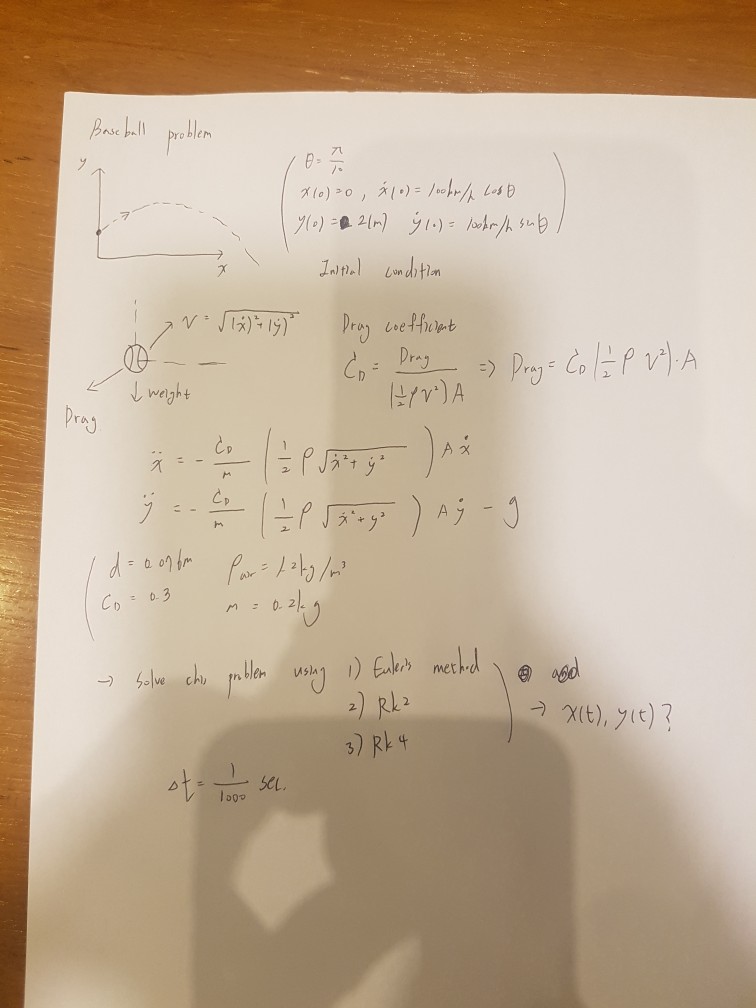 Baseball problem
y
x
θ = π/10
x(0)=0 , ẋ(0) = 100km/h cosθ
y(0) = 2(m) ẏ(0) = 100km/h sinθ
Initial condition
V = √((ẋ)²+(ẏ)²)
weight
Drag
Drag coefficient
C_D = Drag / ((½ρV²)A) => Drag = C_D(½ρV²)·A
ẍ = - C_D/m (½ρ√(ẋ²+ẏ²)) A ẋ
ÿ = - C_D/m (½ρ√(ẋ²+y²)) A ẏ - g
d = 0.076m ρair = 1.2kg/m³
C_D = 0.3 m = 0.2kg
→ Solve this problem using 1) Euler's method
2) Rk2
3) Rk4
and
→ x(t), y(t)?
Δt = 1/1000 sec.